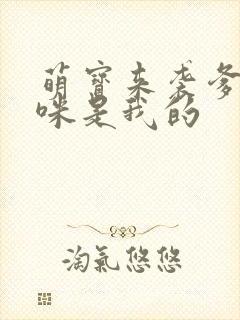 萌寶来袭爹
咪是我的
淘氣悠悠